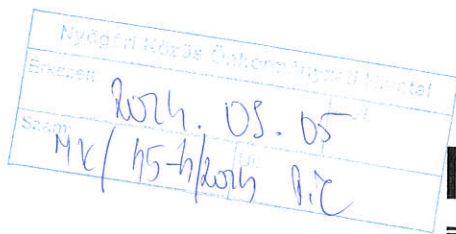 Nyőgéri Közös Önkormányzati Hivatal
Érkezett
2024. 09. 05
Szám:
MK/45-4/2024